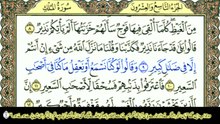 الجزء التاسع والعشرون
سورة الملك
مِنَ الْغَيْظِ كُلَّمَا أُلْقِيَ فِيهَا فَوْجٌ سَأَلَهُمْ خَزَنَتُهَا أَلَمْ يَأْتِكُمْ نَذِيرٌ ۝٨
قَالُوا بَلَىٰ قَدْ جَاءَنَا نَذِيرٌ فَكَذَّبْنَا وَقُلْنَا مَا نَزَّلَ اللَّهُ مِنْ شَيْءٍ إِنْ أَنْتُمْ
إِلَّا فِي ضَلَالٍ كَبِيرٍ ۝٩ وَقَالُوا لَوْ كُنَّا نَسْمَعُ أَوْ نَعْقِلُ مَا كُنَّا فِي أَصْحَابِ
السَّعِيرِ ۝١٠ فَاعْتَرَفُوا بِذَنْبِهِمْ فَسُحْقًا لِأَصْحَابِ السَّعِيرِ ۝١١